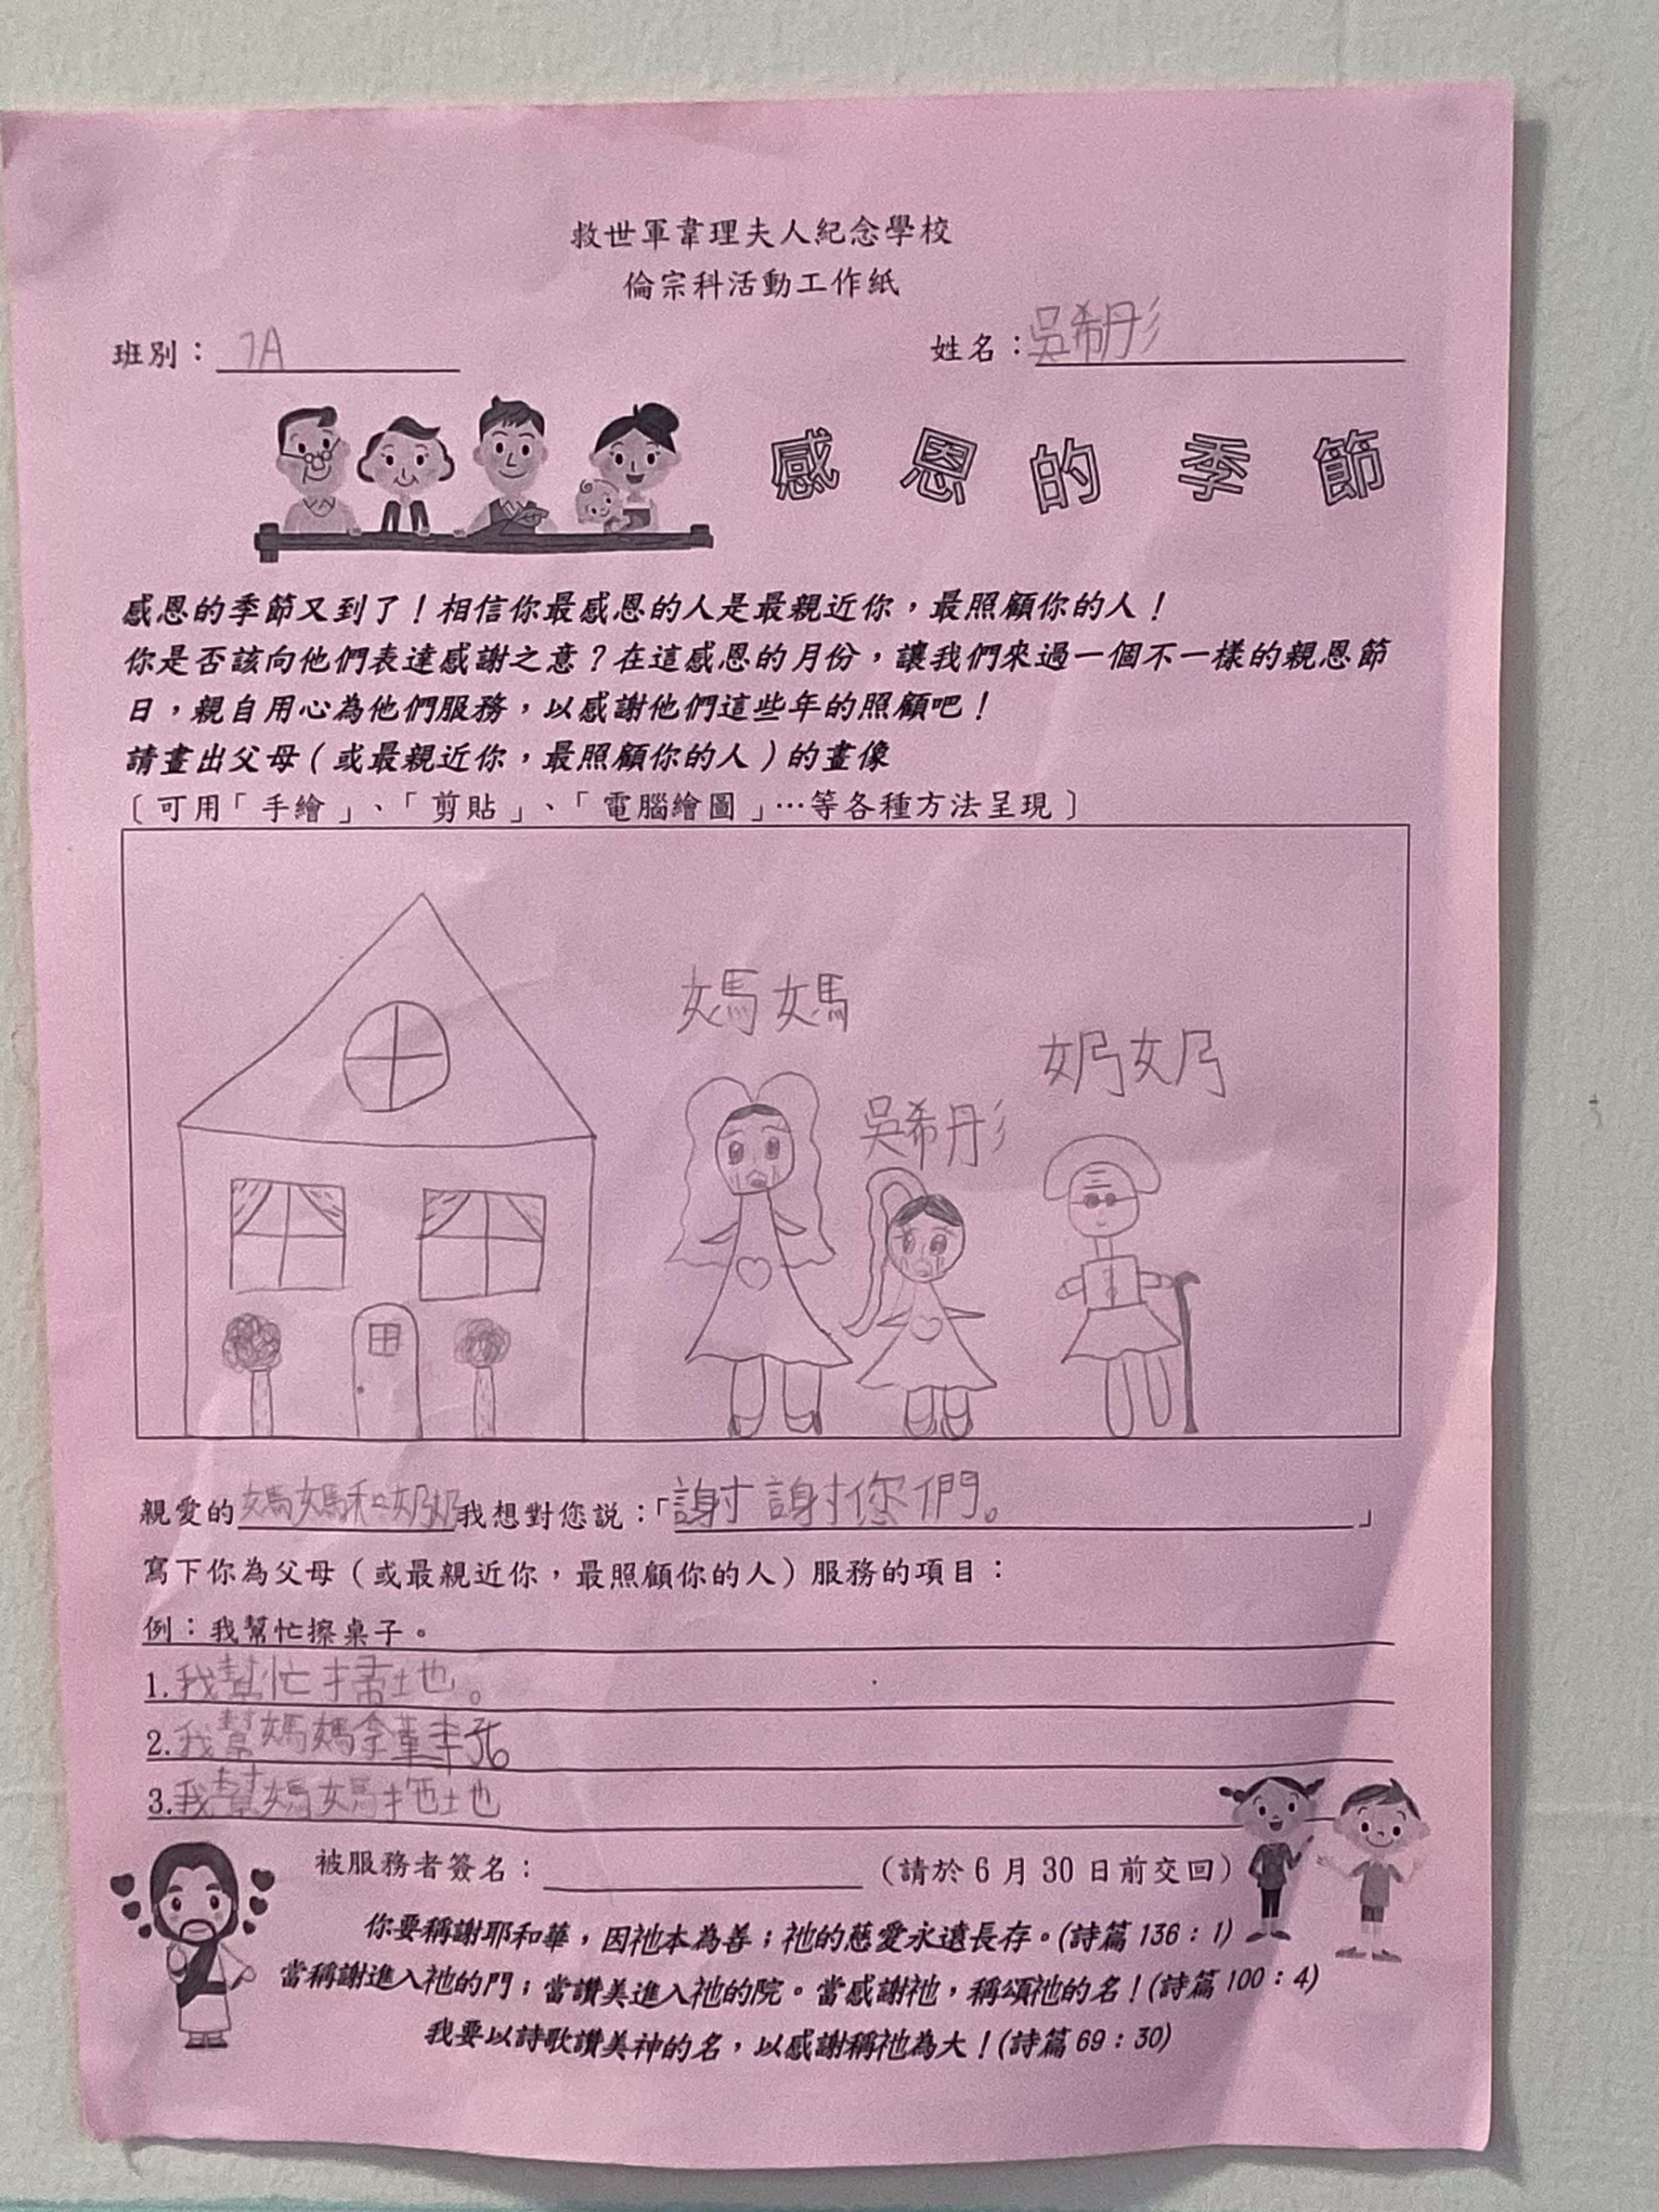 救世軍韋理夫人紀念學校
倫宗科活動工作紙
班別：1A 姓名：吳希彤
感恩的季節
感恩的季節又到了！相信你最感恩的人是最親近你，最照顧你的人！
你是否該向他們表達感謝之意？在這感恩的月份，讓我們來過一個不一樣的親恩節
日，親自用心為他們服務，以感謝他們這些年的照顧吧！
請畫出父母（或最親近你，最照顧你的人）的畫像
〔可用「手繪」、「剪貼」、「電腦繪圖」…等各種方法呈現〕
媽媽
奶奶
吳希彤
親愛的媽媽和奶奶我想對您說：「謝謝您們。」
寫下你為父母（或最親近你，最照顧你的人）服務的項目：
例：我幫忙擦桌子。
1.我幫忙掃地。
2.我幫媽媽拿
3.我幫媽媽拖地
被服務者簽名： （請於6月30日前交回）
你要稱謝耶和華，因祂本為善；祂的慈愛永遠長存。(詩篇136：1)
當稱謝進入祂的門；當讚美進入祂的院。當感謝祂，稱頌祂的名！(詩篇100：4)
我要以詩歌讚美神的名，以感謝稱祂為大！(詩篇69：30)